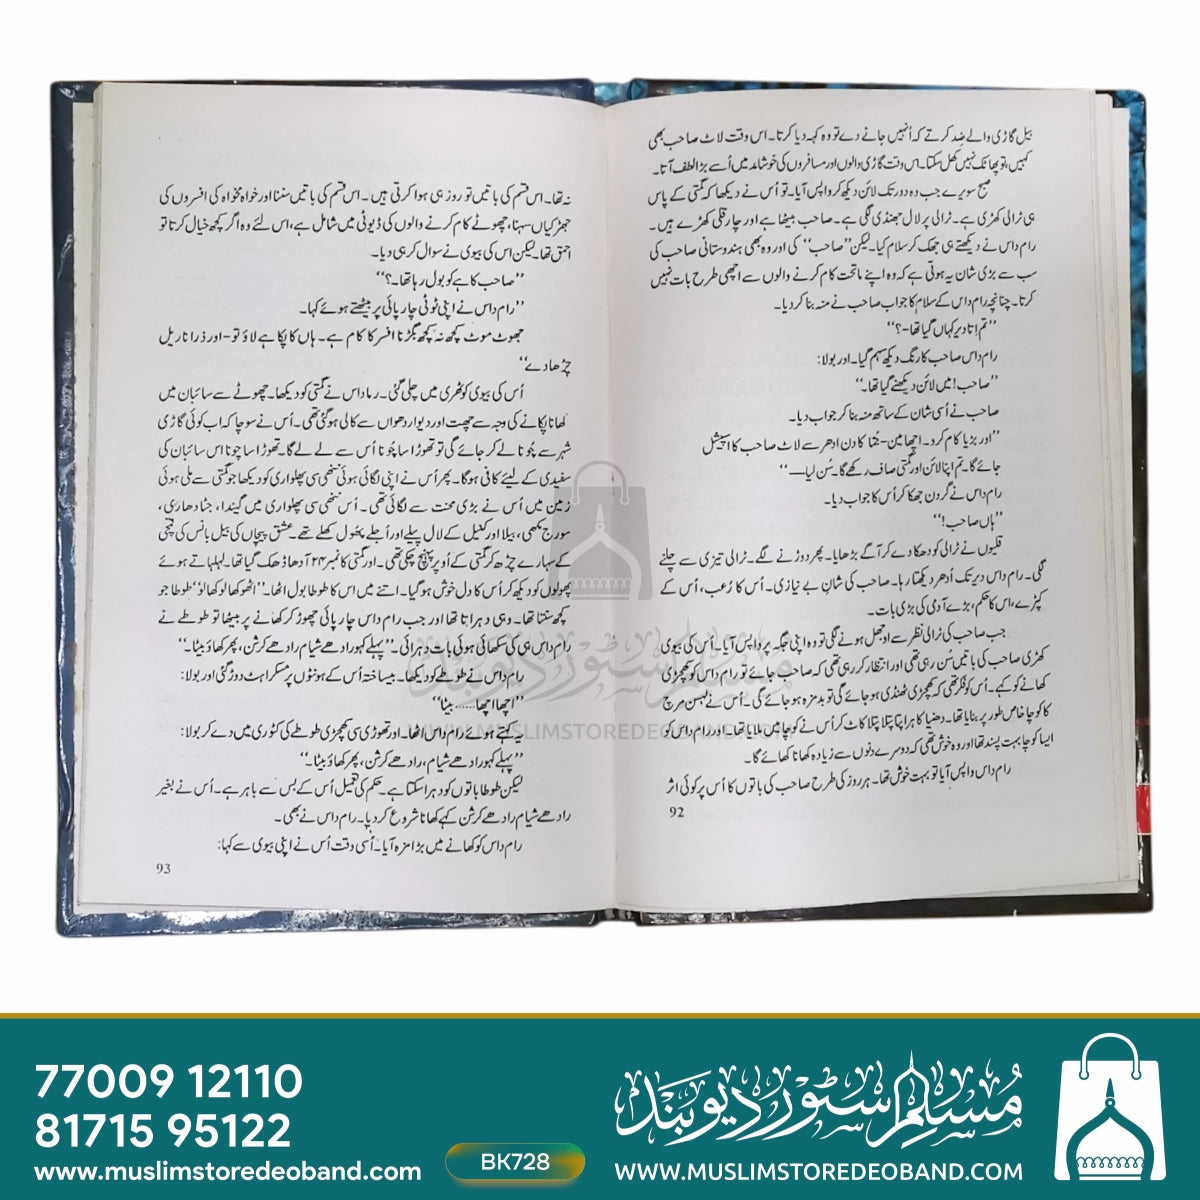 بیل گاڑی والے ضد کرتے کہ اُنہیں جانے دے تو وہ کہہ دیا کرتا۔ اس وقت لاٹ صاحب بھی
کہیں، تو پھاٹک نہیں کھل سکتا۔ اس وقت گاڑی والوں اور مسافروں کی خوشامد میں اُسے بڑا لطف آتا۔
صبح سویرے جب وہ دور تک لائن دیکھ کر واپس آیا۔ تو اُس نے دیکھا کہ گمتی کے پاس
ہی ٹرالی کھڑی ہے۔ ٹرالی پر لال جھنڈی لگی ہے۔ صاحب بیٹھا ہے اور چار قلی کھڑے ہیں۔
رام داس نے دیکھتے ہی جھک کر سلام کیا۔ لیکن ”صاحب“ کی اور وہ بھی ہندوستانی صاحب کی
سب سے بڑی شان یہ ہوتی ہے کہ وہ اپنے ماتحت کام کرنے والوں سے اچھی طرح بات نہیں
کرتا۔ چنانچہ رام داس کے سلام کا جواب صاحب نے منہ بنا کر دیا۔
”تم اِتا دیر کہاں گیا تھا-؟“
رام داس صاحب کا رنگ دیکھ سہم گیا۔ اور بولا:
”صاحب! میں لائن دیکھنے گیا تھا۔“
صاحب نے اُسی شان کے ساتھ منہ بنا کر جواب دیا۔
”اور بڑیا کام کرو۔ اچھا مین- سُتا کا دن ادھر سے لاٹ صاحب کا اسپیشل
جائے گا۔ تم اپنا لائن اور گمتی صاف رکھے گا۔ سُن لیا—“
رام داس نے گردن جھکا کر اُس کا جواب دیا۔
”ہاں صاحب!“
قلیوں نے ٹرالی کو دھکا دے کر آگے بڑھایا۔ پھر دوڑنے لگے۔ ٹرالی تیزی سے چلنے
لگی۔ رام داس دیر تک اُدھر دیکھتا رہا۔ صاحب کی شانِ بے نیازی۔ اُس کا رُعب، اُس کے
کپڑے، اس کا حکم، بڑے آدمی کی بڑی بات۔
جب صاحب کی ٹرالی نظر سے اوجھل ہونے لگی تو وہ اپنی جگہ پر واپس آیا۔ اُس کی بیوی
کھڑی صاحب کی باتیں سُن رہی تھی اور انتظار کر رہی تھی کہ صاحب جائے تو رام داس کو کھچڑی
کھانے کو کہے۔ اُس کو فکر تھی کہ کھچڑی ٹھنڈی ہو جائے گی تو بدمزہ ہو جائے گی۔ اُس نے لہسن مرچ
کا کوچا خاص طور پر بنایا تھا۔ دھنیا کا ہرا پتا پتلا پتلا کاٹ کر اُس نے کوچا میں ملایا تھا۔ اور رام داس کو
ایسا کوچا بہت پسند تھا اور وہ خوش تھی کہ دوسرے دنوں سے زیادہ کھانا کھائے گا۔
رام داس واپس آیا تو بہت خوش تھا۔ ہر روز کی طرح صاحب کی باتوں کا اُس پر کوئی اثر
92
نہ تھا۔ اس قسم کی باتیں تو روز ہی ہوا کرتی ہیں۔ اس قسم کی باتیں سننا اور خواہ مخواہ کی افسروں کی
جھڑکیاں سہنا، چھوٹے کام کرنے والوں کی ڈیوٹی میں شامل ہے، اس لئے وہ اگر کچھ خیال کرتا تو
احمق تھا۔ لیکن اس کی بیوی نے سوال کر ہی دیا۔
”صاحب کاہے کو بول رہا تھا۔؟“
”رام داس نے اپنی ٹوٹی چارپائی پر بیٹھتے ہوئے کہا۔
جھوٹ موٹ کچھ نہ کچھ بگڑنا افسر کا کام ہے۔ ہاں کا پکا ہے لاؤ تو- اور ذرا ناریل
چڑھا دے“
اُس کی بیوی کوٹھری میں چلی گئی۔ رما داس نے گمتی کو دیکھا۔ چھوٹے سے سائبان میں
کھانا پکانے کی وجہ سے چھت اور دیوار دھواں سے کالی ہو گئی تھی۔ اُس نے سوچا کہ اب کوئی گاڑی
شہر سے چُونا لے کر جائے گی تو تھوڑا سا چُونا اُس سے لے لے گا۔ تھوڑا سا چونا اس سائبان کی
سفیدی کے لئے کافی ہوگا۔ پھر اُس نے اپنی لگائی ہوئی ننھی سی پھلواری کو دیکھا جو گمتی سے ملی ہوئی
زمین میں اُس نے بڑی محنت سے لگائی تھی۔ اُس ننھی سی پھلواری میں گیندا، جٹا دھاری،
سورج مکھی، بیلا اور کنیل کے لال پیلے اور اُجلے پھول کھلے تھے۔ عشق پیچاں کی بیل بانس کی قمچی
کے سہارے چڑھ کر گمتی کے اُوپر پہنچ چکی تھی۔ اور گمتی کا نمبر ۲۴ آدھا ڈھک گیا تھا۔ لہلہاتے ہوئے
پھولوں کو دیکھ کر اُس کا دل خوش ہو گیا۔ اتنے میں اس کا طوطا بول اٹھا۔ ”اٹھو کھا لو کھا لو“ طوطا جو
کچھ سنتا تھا۔ وہی دہراتا تھا اور جب رام داس چارپائی چھوڑ کر کھانے پر بیٹھا تو طوطے نے
رام داس ہی کی سکھائی ہوئی بات دہرائی۔ ”پہلے کہو رادھے شیام رادھے کرشن، پھر کھاؤ بیٹا۔“
رام داس نے طوطے کو دیکھا۔ بیساختہ اُس کے ہونٹوں پر مسکراہٹ دوڑ گئی اور بولا:
”اچھا اچھا...... بیٹا“
یہ کہتے ہوئے رام داس اٹھا۔ اور تھوڑی سی کھچڑی طوطے کی کٹوری میں دے کر بولا:
”پہلے کہو رادھے شیام، رادھے کرشن، پھر کھاؤ بیٹا۔“
لیکن طوطا باتوں کو دہرا سکتا ہے۔ حکم کی تعمیل اُس کے بس سے باہر ہے۔ اُس نے بغیر
رادھے شیام رادھے کرشن کہے کھانا شروع کر دیا۔ رام داس نے بھی۔
رام داس کو کھانے میں بڑا مزہ آیا۔ اُسی وقت اُس نے اپنی بیوی سے کہا:
93
مسلم سٹور دیوبند
WWW.MUSLIMSTOREDEOBAND.COM
77009 12110
81715 95122
www.muslimstoredeoband.com
BK728
مسلم سٹور دیوبند
WWW.MUSLIMSTOREDEOBAND.COM